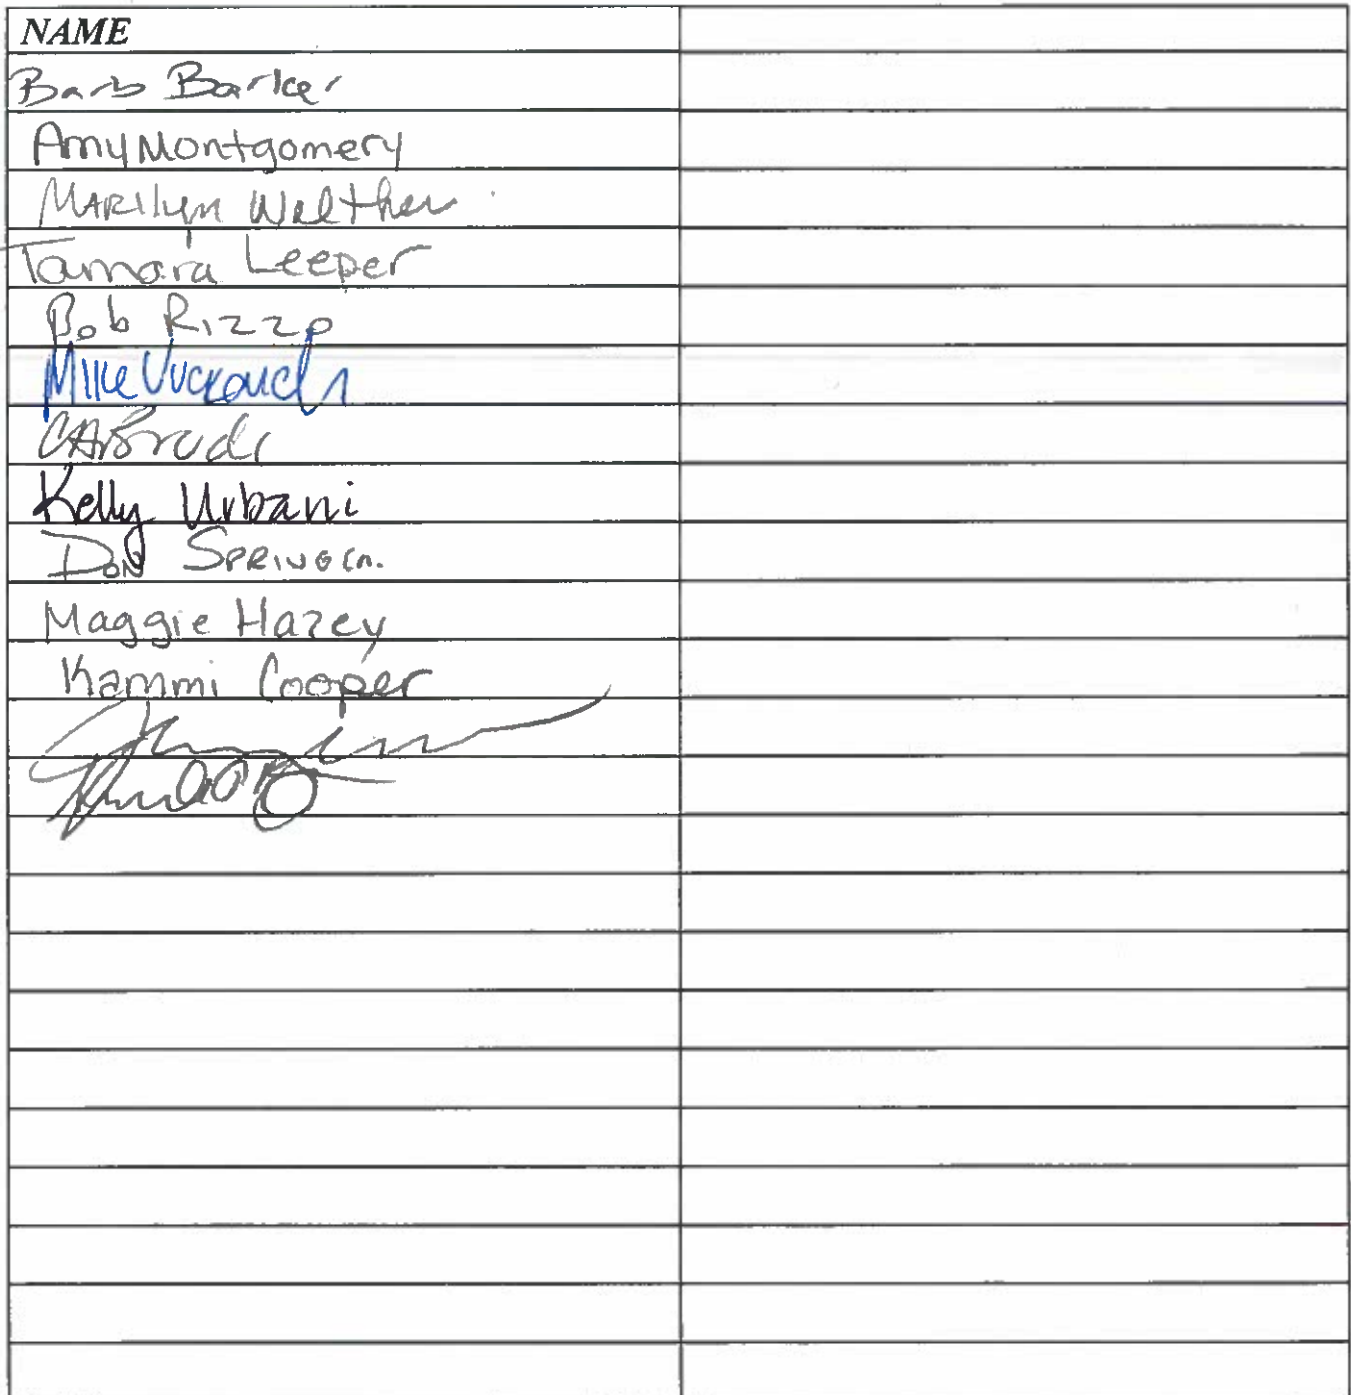 NAME
Barb Barker
Amy Montgomery
MARIlyn Walther
Tamara Leeper
Bob Rizzo
Mike
Kelly Urbani
DON
Maggie Hazey
Kammi Cooper